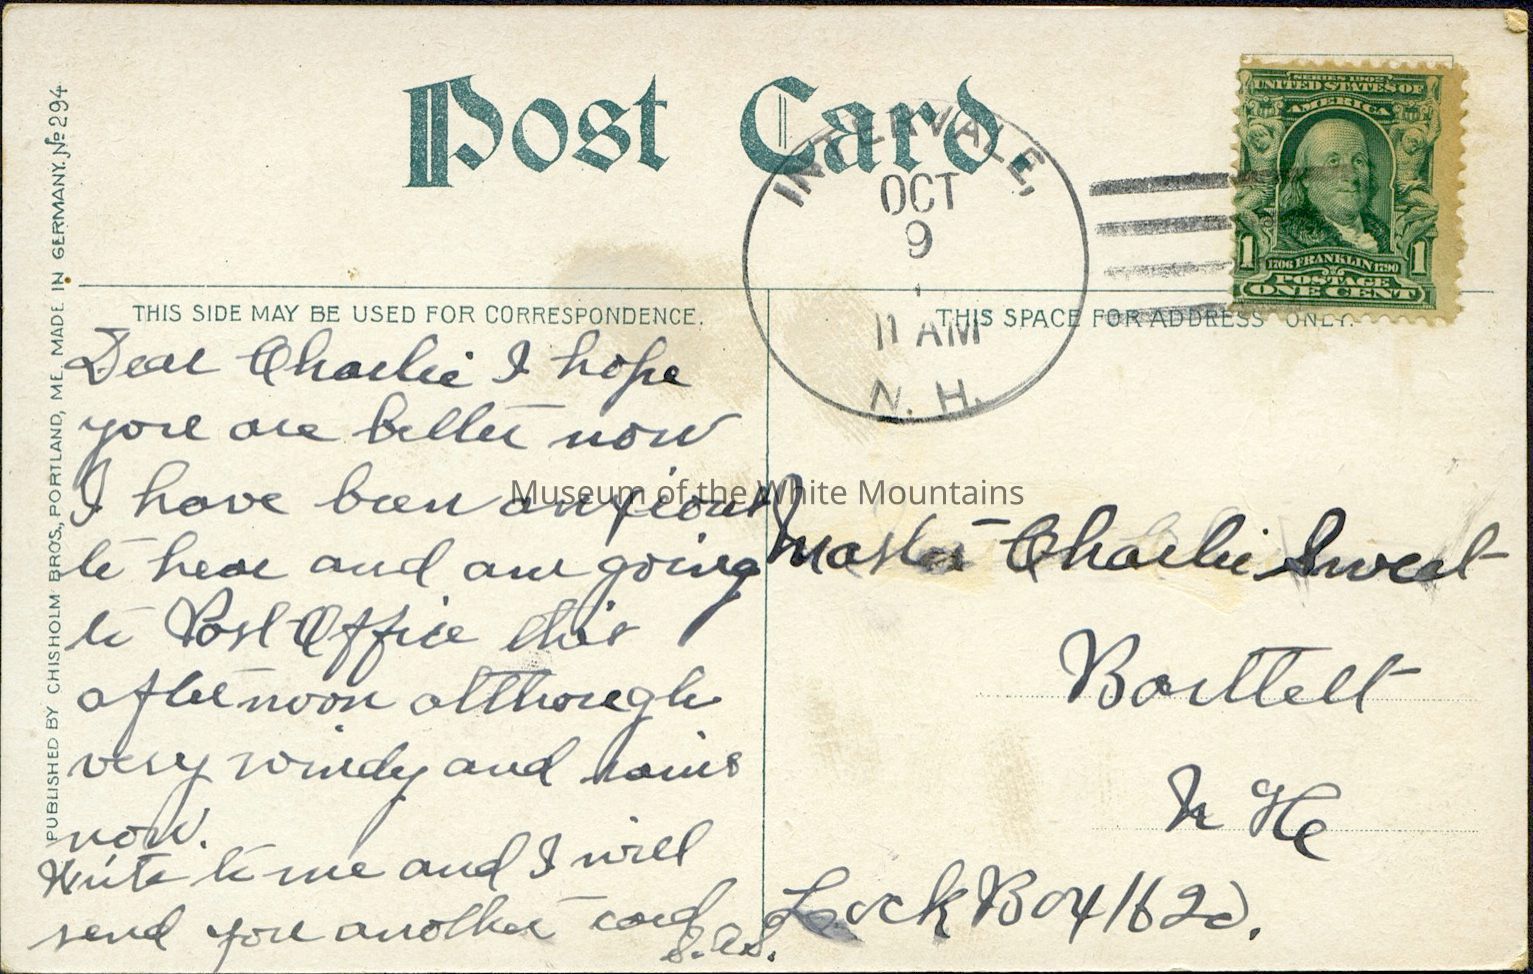 Post Card.
INTERVALE,
OCT
9
11 AM
N. H.
SERIES 1902
UNITED STATES OF
AMERICA
1706 FRANKLIN 1790
1 1
POSTAGE
ONE CENT
PUBLISHED BY CHISHOLM BROS., PORTLAND, ME. MADE IN GERMANY. No 294
THIS SIDE MAY BE USED FOR CORRESPONDENCE.
THIS SPACE FOR ADDRESS ONLY.
Dear Charlie I hope
you are better now
I have been anxious
to hear and am going
to Post Office this
afternoon although
very windy and rains
now.
Write to me and I will
send you another card
S.A.S.
Museum of the White Mountains
Master Charlie Sweat
Bartlett
N H
Lock Box